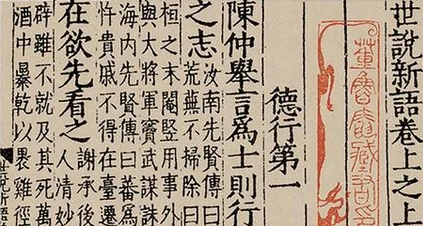 世說新語卷上之上
德行第一
陳仲舉言爲士則行
之志汝南先賢傳曰
荒蕪不掃除曰
桓之末閹豎用事外
與大將軍竇武謀誅
海内先賢傳曰蕃爲
忤貴戚不得在臺遷
在欲先看之謝承後
人清妙
辟雖不就及其死萬
酒中暴乾以裹雞徑
世說新語